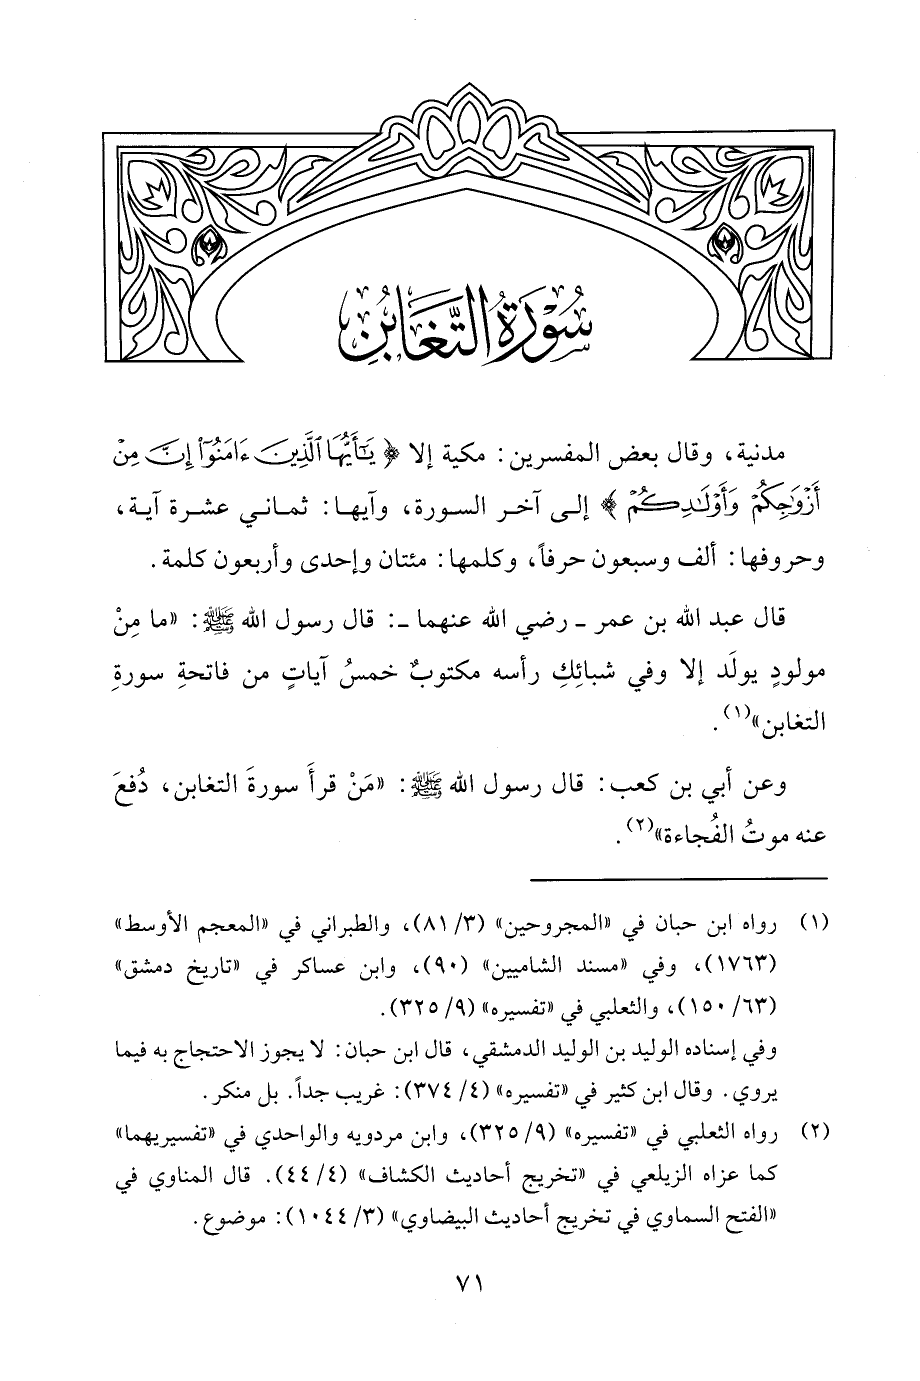 سُورَةُ التَّغَابُنِ
مدنية، وقال بعض المفسرين: مكية إلا ﴿يَٰٓأَيُّهَا ٱلَّذِينَ ءَامَنُوٓا۟ إِنَّ مِنْ
أَزْوَٰجِكُمْ وَأَوْلَٰدِكُمْ﴾ إلى آخر السورة، وآيها: ثماني عشرة آية،
وحروفها: ألف وسبعون حرفاً، وكلمها: مئتان وإحدى وأربعون كلمة.
قال عبد الله بن عمر ـ رضي الله عنهما ـ: قال رسول الله ﷺ: «ما مِنْ
مولودٍ يولَد إلا وفي شبائِكِ رأسه مكتوبٌ خمسُ آياتٍ من فاتحةِ سورةِ
التغابن»(١).
وعن أبي بن كعب: قال رسول الله ﷺ: «مَنْ قرأَ سورةَ التغابن، دُفعَ
عنه موتُ الفُجاءة»(٢).
(١) رواه ابن حبان في «المجروحين» (٣/ ٨١)، والطبراني في «المعجم الأوسط»
(١٧٦٣)، وفي «مسند الشاميين» (٩٠)، وابن عساكر في «تاريخ دمشق»
(٦٣/ ١٥٠)، والثعلبي في «تفسيره» (٩/ ٣٢٥).
وفي إسناده الوليد بن الوليد الدمشقي، قال ابن حبان: لا يجوز الاحتجاج به فيما
يروي. وقال ابن كثير في «تفسيره» (٤/ ٣٧٤): غريب جداً. بل منكر.
(٢) رواه الثعلبي في «تفسيره» (٩/ ٣٢٥)، وابن مردويه والواحدي في «تفسيريهما»
كما عزاه الزيلعي في «تخريج أحاديث الكشاف» (٤/ ٤٤). قال المناوي في
«الفتح السماوي في تخريج أحاديث البيضاوي» (٣/ ١٠٤٤): موضوع.
٧١